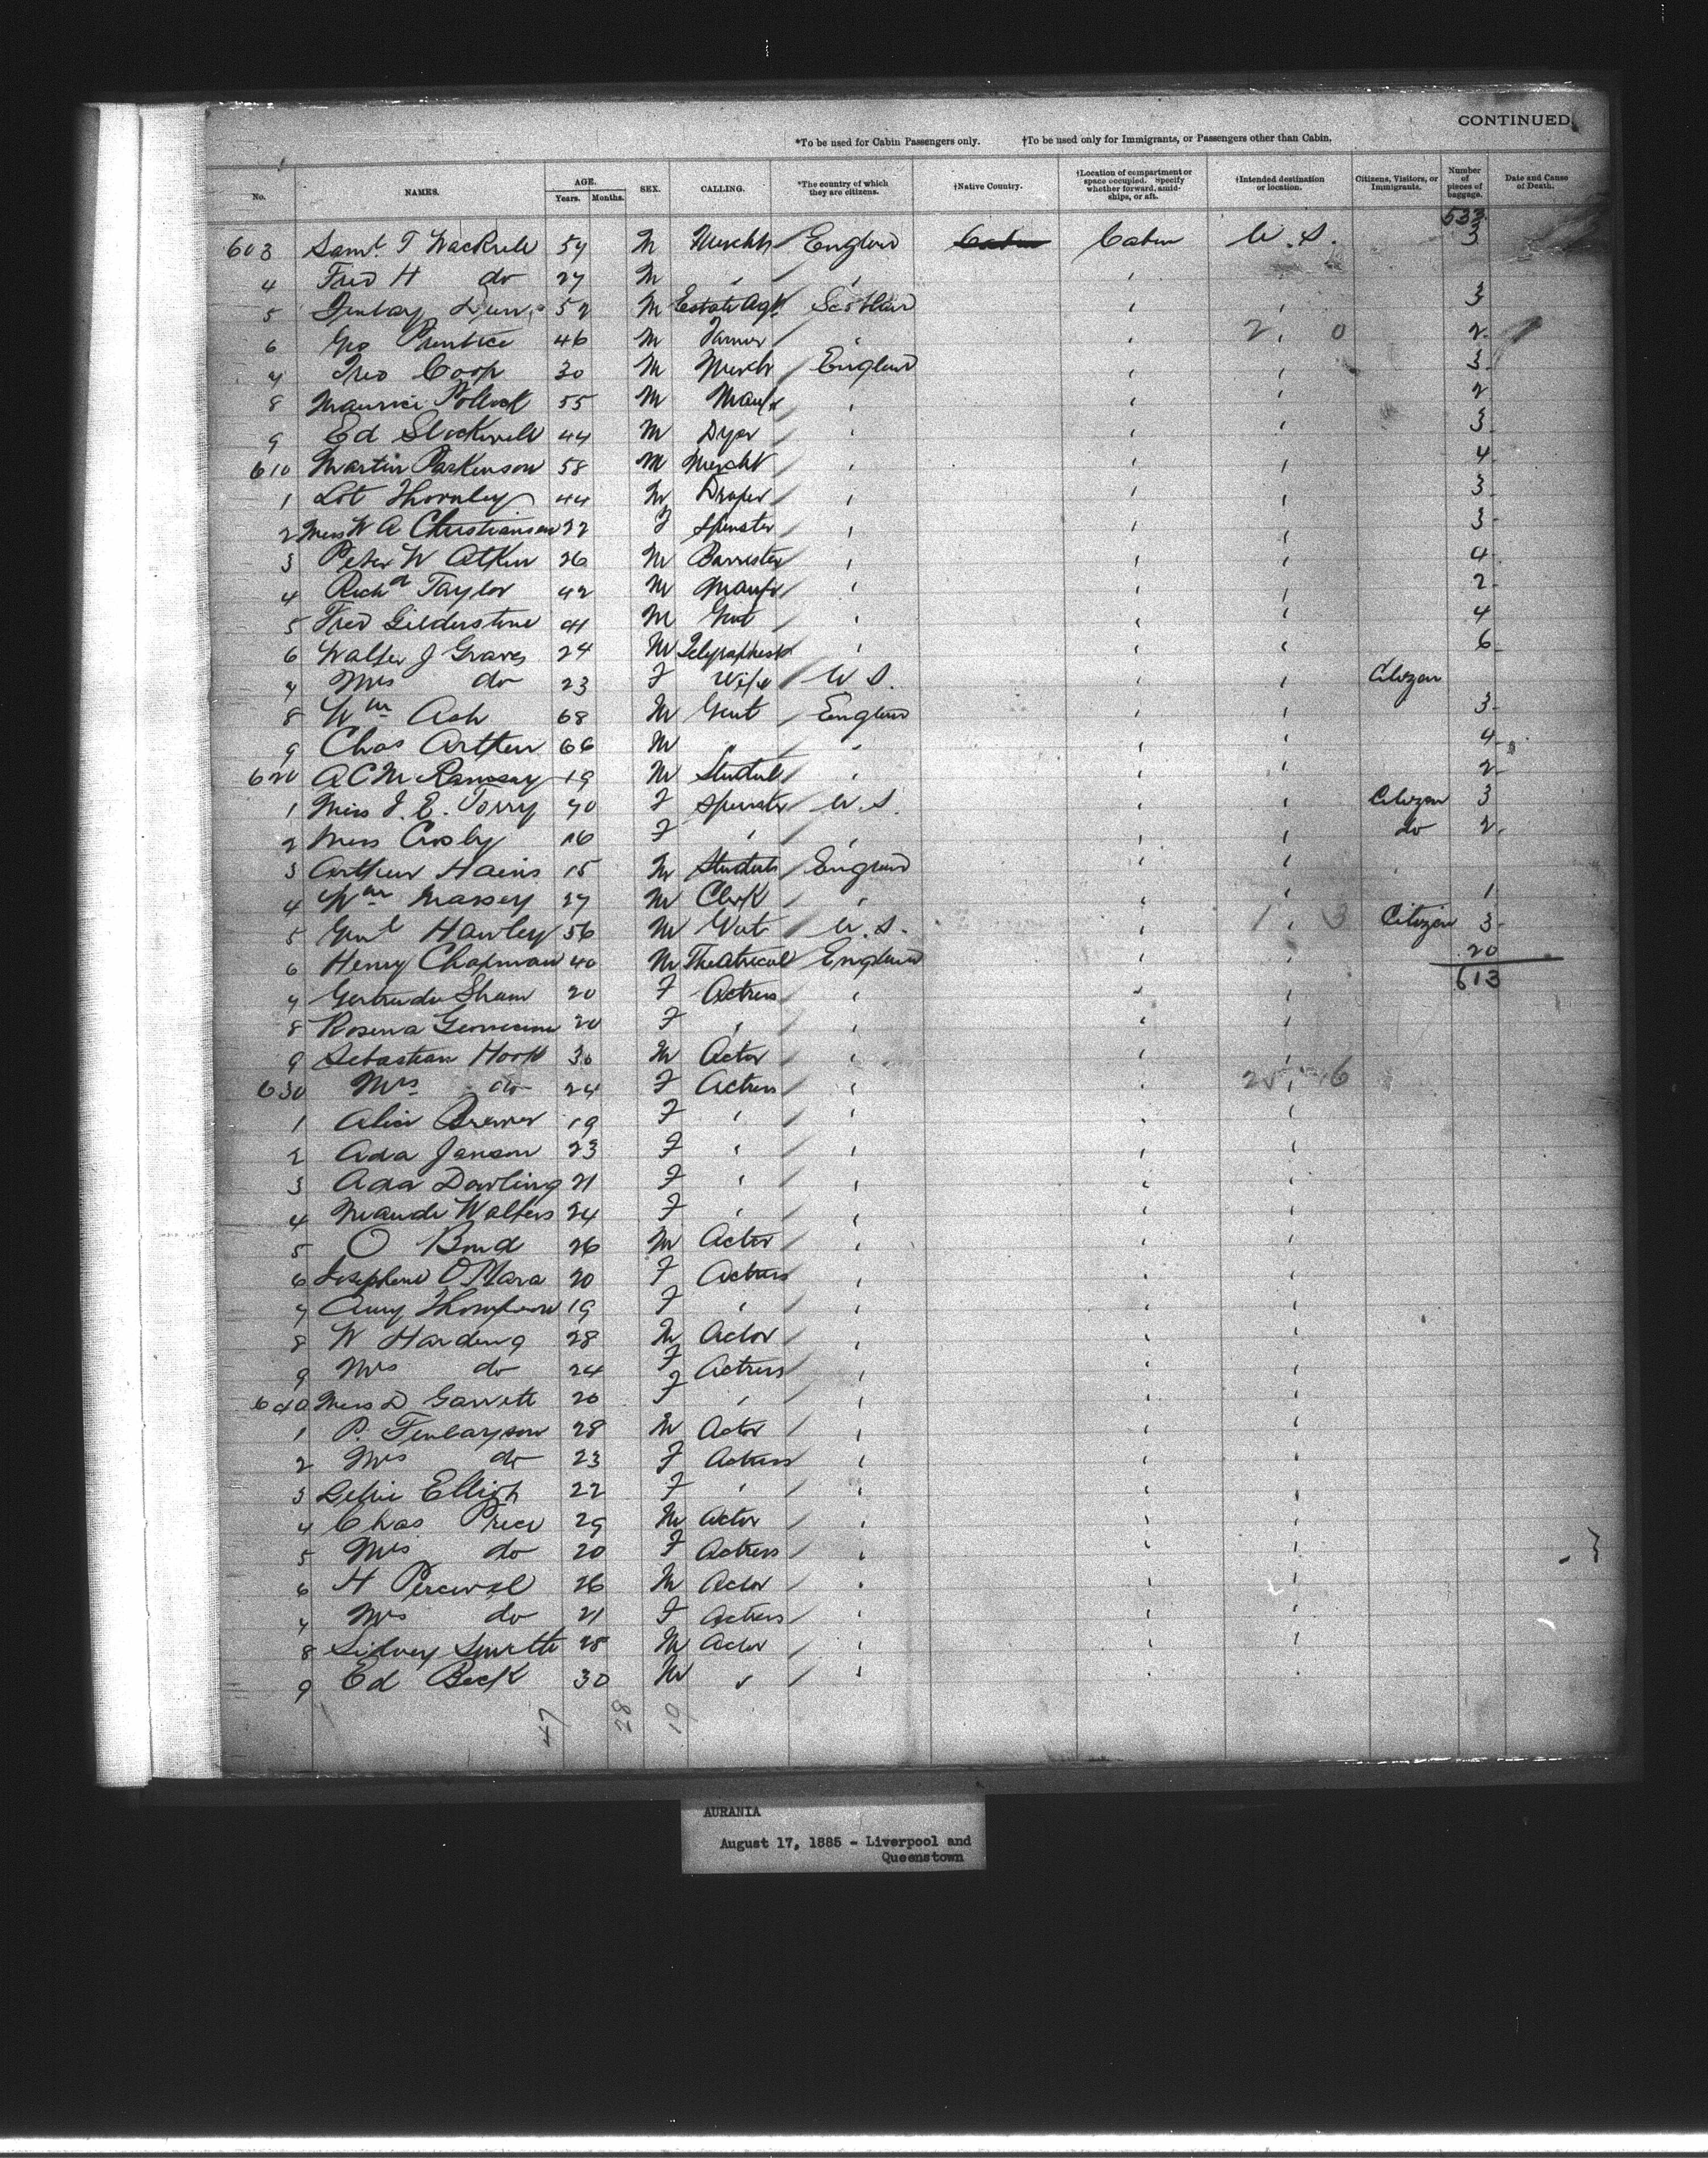 CONTINUED.
*To be used for Cabin Passengers only. †To be used only for Immigrants, or Passengers other than Cabin.
No. NAMES. AGE. Years. Months. SEX. CALLING. *The country of which they are citizens. †Native Country. †Location of compartment or space occupied. Specify whether forward, amidships, or aft. †Intended destination or location. Citizens, Visitors, or Immigrants. Number of pieces of baggage. Date and Cause of Death.
533
603 Saml T Wackrill 54 M Mercht England Cabin Cabin U.S. 3
4 Fred H do 27 M " " "
5 Finlay Dun 52 M Estate Agt Scotland " " 3
6 Geo Prentice 46 M Farmer " " 2 " 0 2
7 Fred Coop 30 M Mercht England " " 3
8 Maurice Pollock 55 M Manfr " " " 2
9 Ed Stockwell 44 M Dyer " " " 3
610 Martin Parkinson 58 M Mercht " " " 4
1 Lot Thornley 44 M Draper " " " 3
2 Miss W A Christianson 22 F Spinster " " " 3
3 Peter W Atkin 26 M Barrister " " " 4
4 Richd Taylor 42 M Manfr " " " 2
5 Fred Gilderstone 41 M Gent " " " 4
6 Walter J Graves 24 M Telegraphist " " " 6
7 Mrs do 23 F Wife U S. " " Citizen
8 Wm Ash 68 M Gent England " " 3
9 Chas Arthur 66 M " " " " 4
620 A C M Ramsay 19 M Student " " " 2
1 Miss J. E. Torry 40 F Spinster U.S. " " Citizen 3
2 Miss Crosby 16 F " " " " do 2
3 Arthur Hains 15 M Student England " "
4 Wm Massey 27 M Clerk " " " 1
5 Genl Hawley 56 M U.S. " 1 " 3 Citizen 3
6 Henry Chapman 40 M Theatrical England " " 20
7 Gertrude Shaw 20 F Actress " " " 613
8 Rosena 20 F " " " "
9 Sebastian Hook 30 M Actor " " "
630 Mrs do 24 F Actress " " 25 " 6
1 Alice Brewer 19 F " " " "
2 Ada Janson 23 F " " " "
3 Ada Dowling 21 F " " " "
4 Maude Walters 24 F " " " "
5 O Bond 26 M Actor " " "
6 Josephine O'Mara 20 F Actress " " "
7 Amy Thompson 19 F " " " "
8 W Harding 28 M Actor " " "
9 Mrs do 24 F Actress " " "
640 Miss D Garrett 20 F " " " "
1 P. Finlayson 28 M Actor " " "
2 Mrs do 23 F Actress " " "
3 Elliott 22 F " " " "
4 Chas Price 29 M Actor " " "
5 Mrs do 20 F Actress " " "
6 H Percival 26 M Actor " " "
7 Mrs do 21 F Actress " " "
8 Sidney Smith 25 M Actor " " "
9 Ed Beck 30 M " " " "
47 28 10
AURANIA
August 17, 1885 - Liverpool and
Queenstown